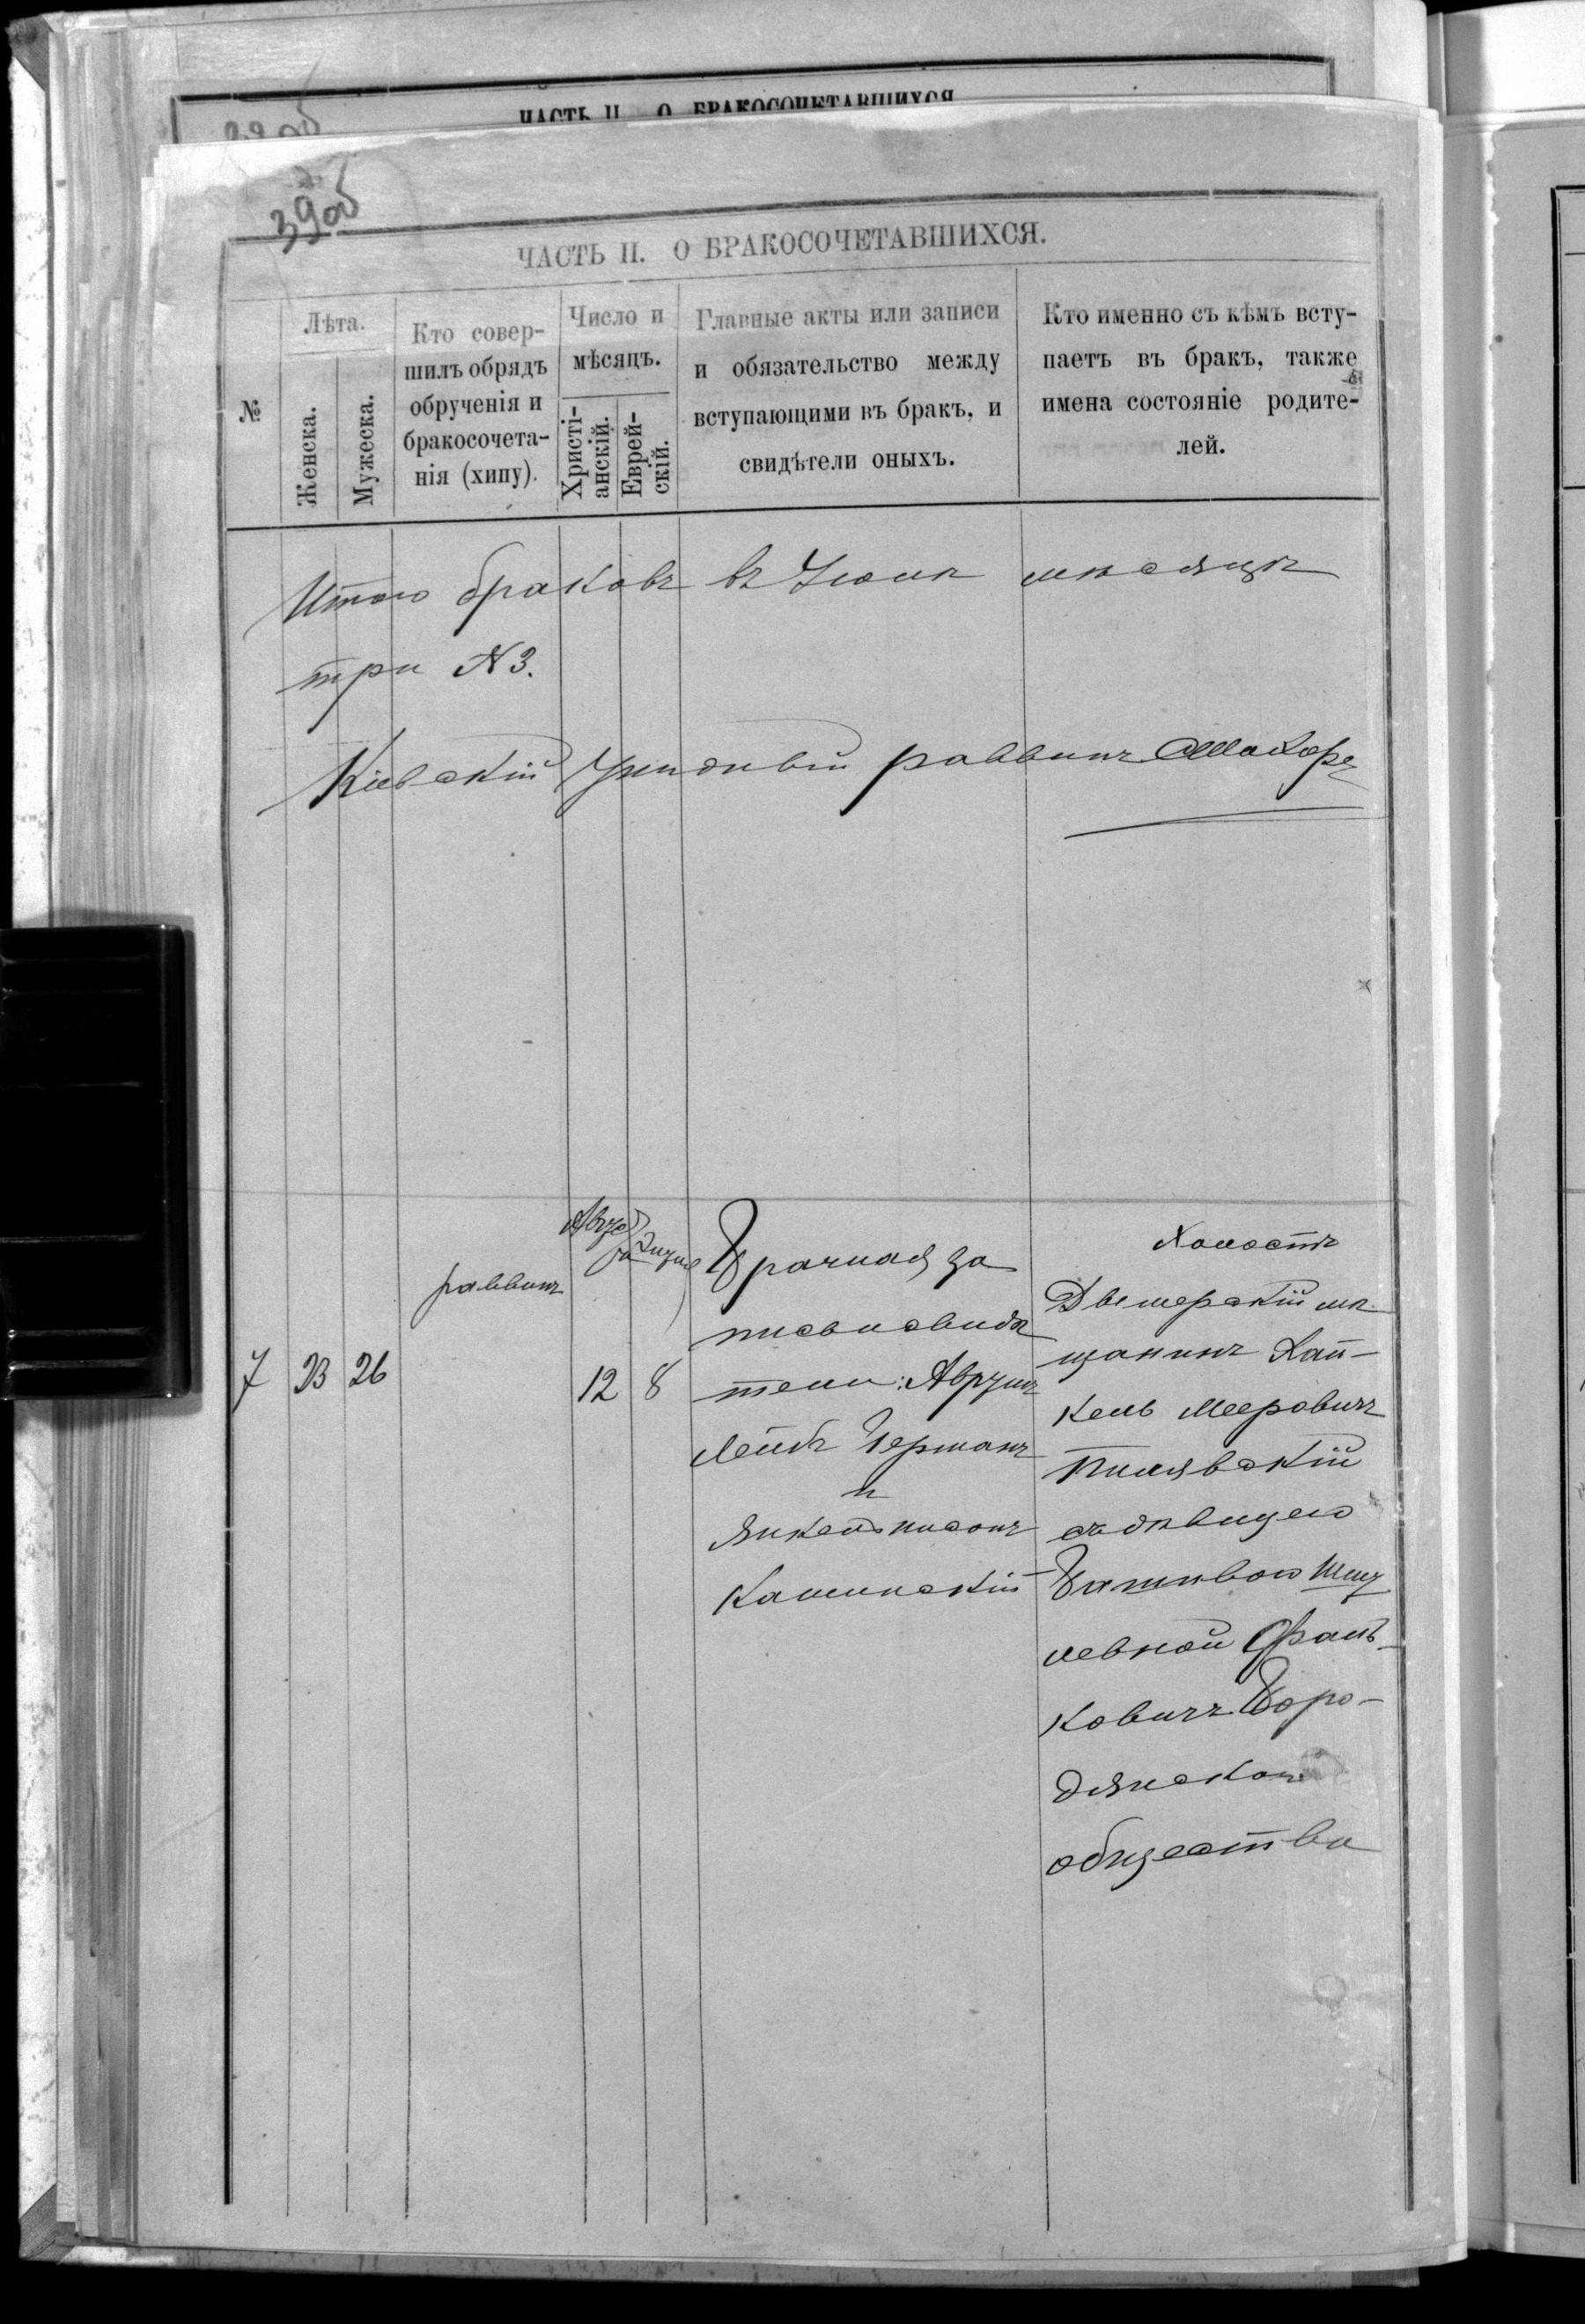 ЧАСТЬ II. О БРАКОСОЧЕТАВШИХСЯ
39об
ЧАСТЬ II. О БРАКОСОЧЕТАВШИХСЯ.
№
Лѣта.
Женска.
Мужеска.
Кто совер-
шилъ обрядъ
обрученія и
бракосочета-
нія (хипу).
Число и
мѣсяцъ.
Христі-
анскій.
Еврей-
скій.
Главные акты или записи
и обязательство между
вступающими въ бракъ, и
свидѣтели оныхъ.
Кто именно съ кѣмъ всту-
паетъ въ бракъ, также
имена состояніе родите-
лей.
Итого браковъ въ мѣсяцѣ
три N 3.
Кіевскій Уѣздный раввинъ
7
23
26
раввинъ
Авгус
та
12
8
Брачная за
пись и свидѣ
тели: Аврумъ
Лейбъ Германъ
и
Янкель
Каминскій
Холостъ
Дымерскій мѣ-
щанинъ Хай-
кель Мееровичъ
Пилявскій
съ дѣвицею
Шму
левной Фраль-
ковичъ Боро-
дянского
общества